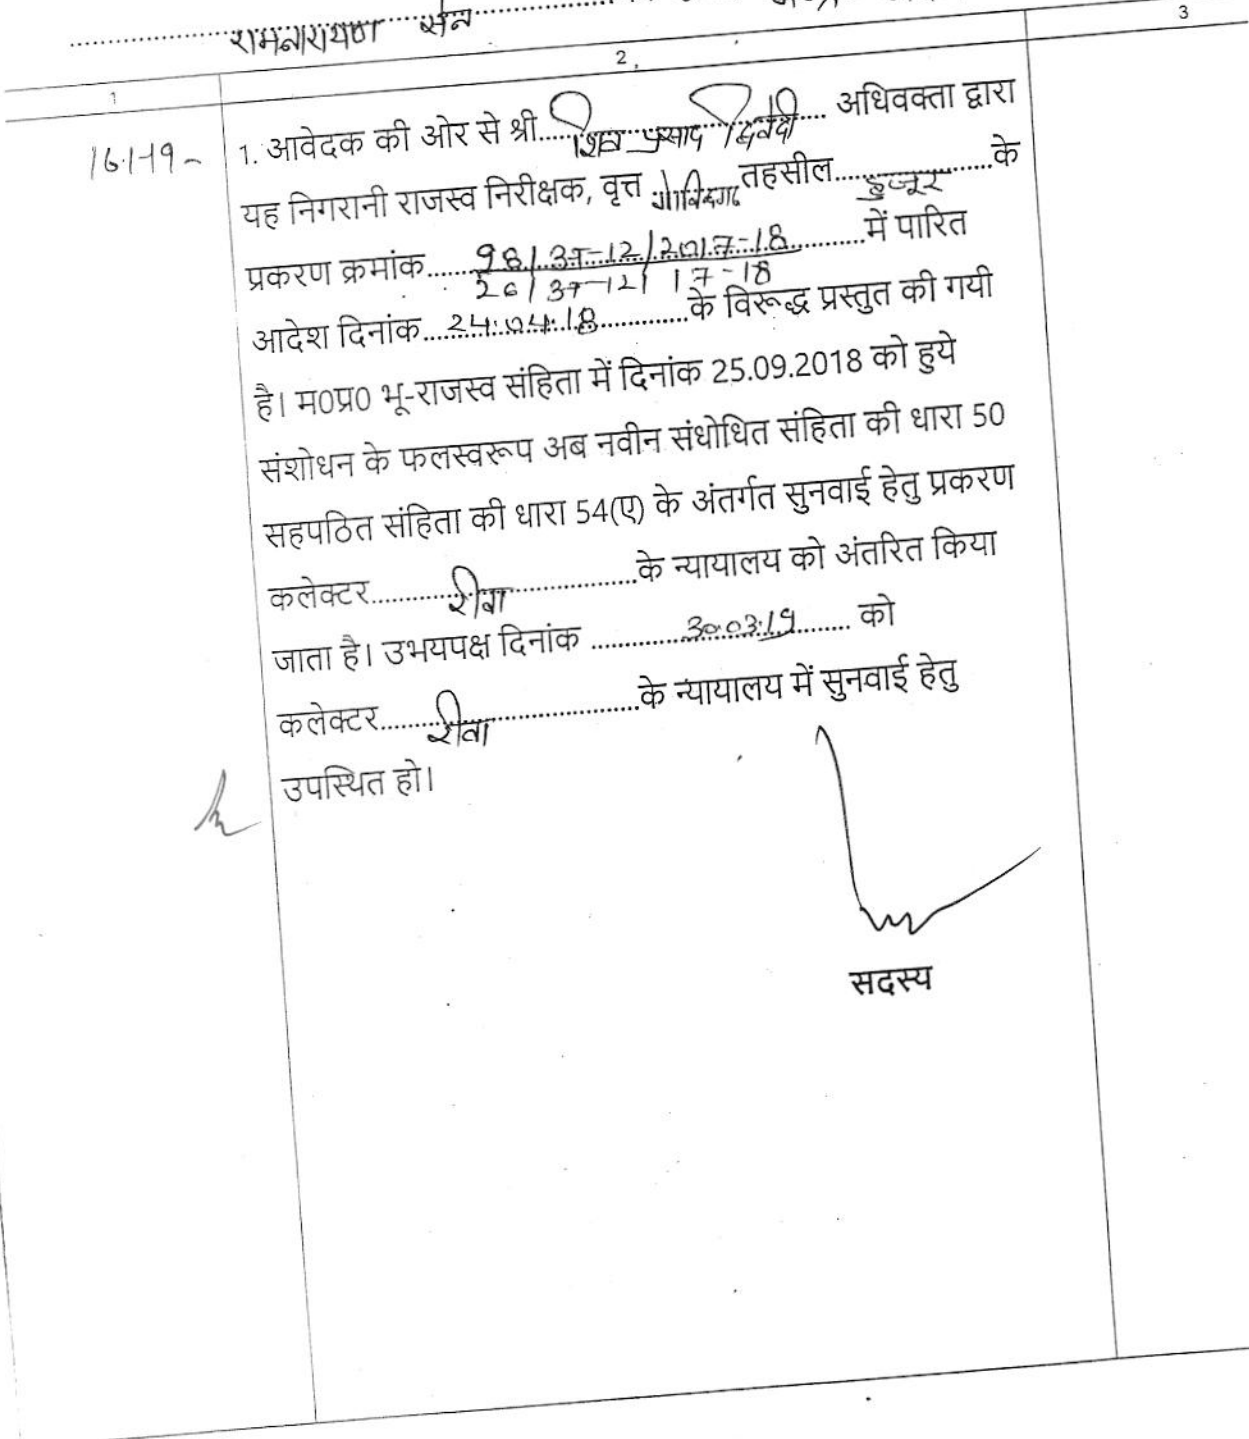 रामनारायण सेन
1 2 3
16.1.19 - 1. आवेदक की ओर से श्री.....शिव प्रसाद द्विवेदी..... अधिवक्ता द्वारा
यह निगरानी राजस्व निरीक्षक, वृत्त गोविन्दगढ तहसील.....हुजूर.....के
प्रकरण क्रमांक.....98/अ-12/2017-18.....में पारित
26/अ-12/17-18
आदेश दिनांक...24.04.18.....के विरूद्ध प्रस्तुत की गयी
है। म0प्र0 भू-राजस्व संहिता में दिनांक 25.09.2018 को हुये
संशोधन के फलस्वरूप अब नवीन संधोधित संहिता की धारा 50
सहपठित संहिता की धारा 54(ए) के अंतर्गत सुनवाई हेतु प्रकरण
कलेक्टर.....रीवा.....के न्यायालय को अंतरित किया
जाता है। उभयपक्ष दिनांक .....30.03.19..... को
कलेक्टर.....रीवा.....के न्यायालय में सुनवाई हेतु
उपस्थित हो।
सदस्य